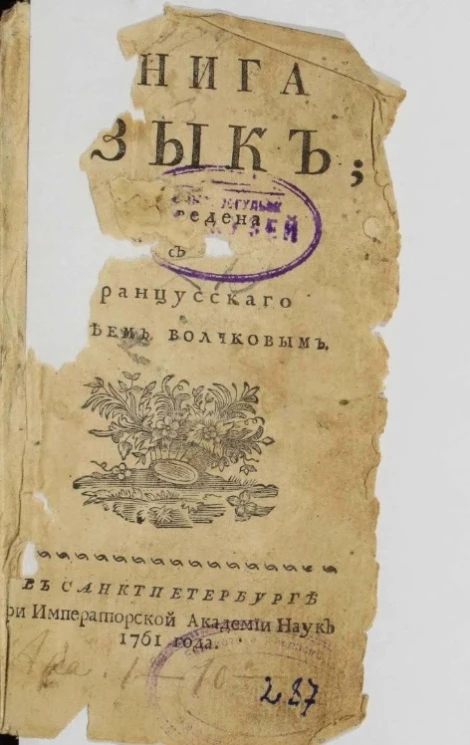 НИГА
ЗЫКЪ;
ведена
съ
ранцусскаго
ѢЕМЪ ВОЛЧКОВЫМЪ.
ВЪ САНКТПЕТЕРБУРГѢ
ри Императорской Академїи Наукъ
1761 года.
287